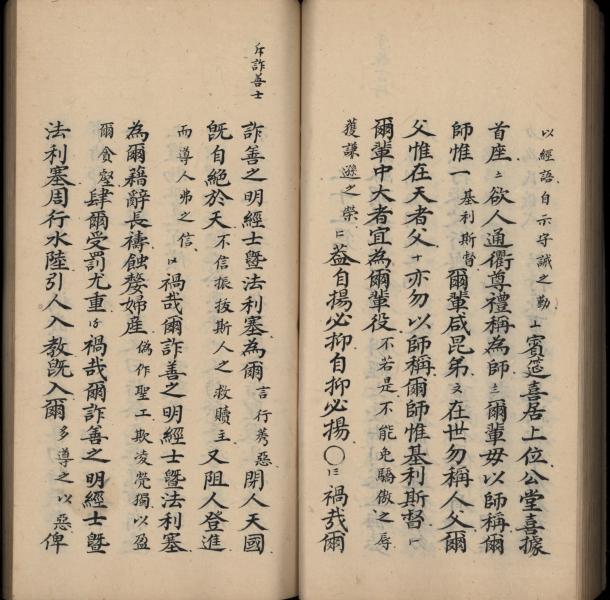 以經語自示守誡之勤〦賓筵喜居上位公堂喜據
首座〧欲人通衢尊禮稱為師〨爾輩毋以師稱爾
師惟一基利斯督爾輩咸昆弟〩在世勿稱人父爾
父惟在天者父十亦勿以師稱爾師惟基利斯督
爾輩中大者宜為爾輩役不若是不能免驕傲之辱
獲謙遜之榮葢自揚必抑自抑必揚〇禍哉爾
斥詐善士
詐善之明經士暨法利塞為爾言行莠惡閉人天國
旣自絕於天不信振拔斯人之救贖主又阻人登進
而導人弗之信禍哉爾詐善之明經士暨法利塞
為爾藉辭長禱蝕嫠婦產偽作聖工欺凌煢獨以盈
爾貪壑肆爾受罰尤重禍哉爾詐善之明經士暨
法利塞周行水陸引人入教旣入爾多導之以惡俾